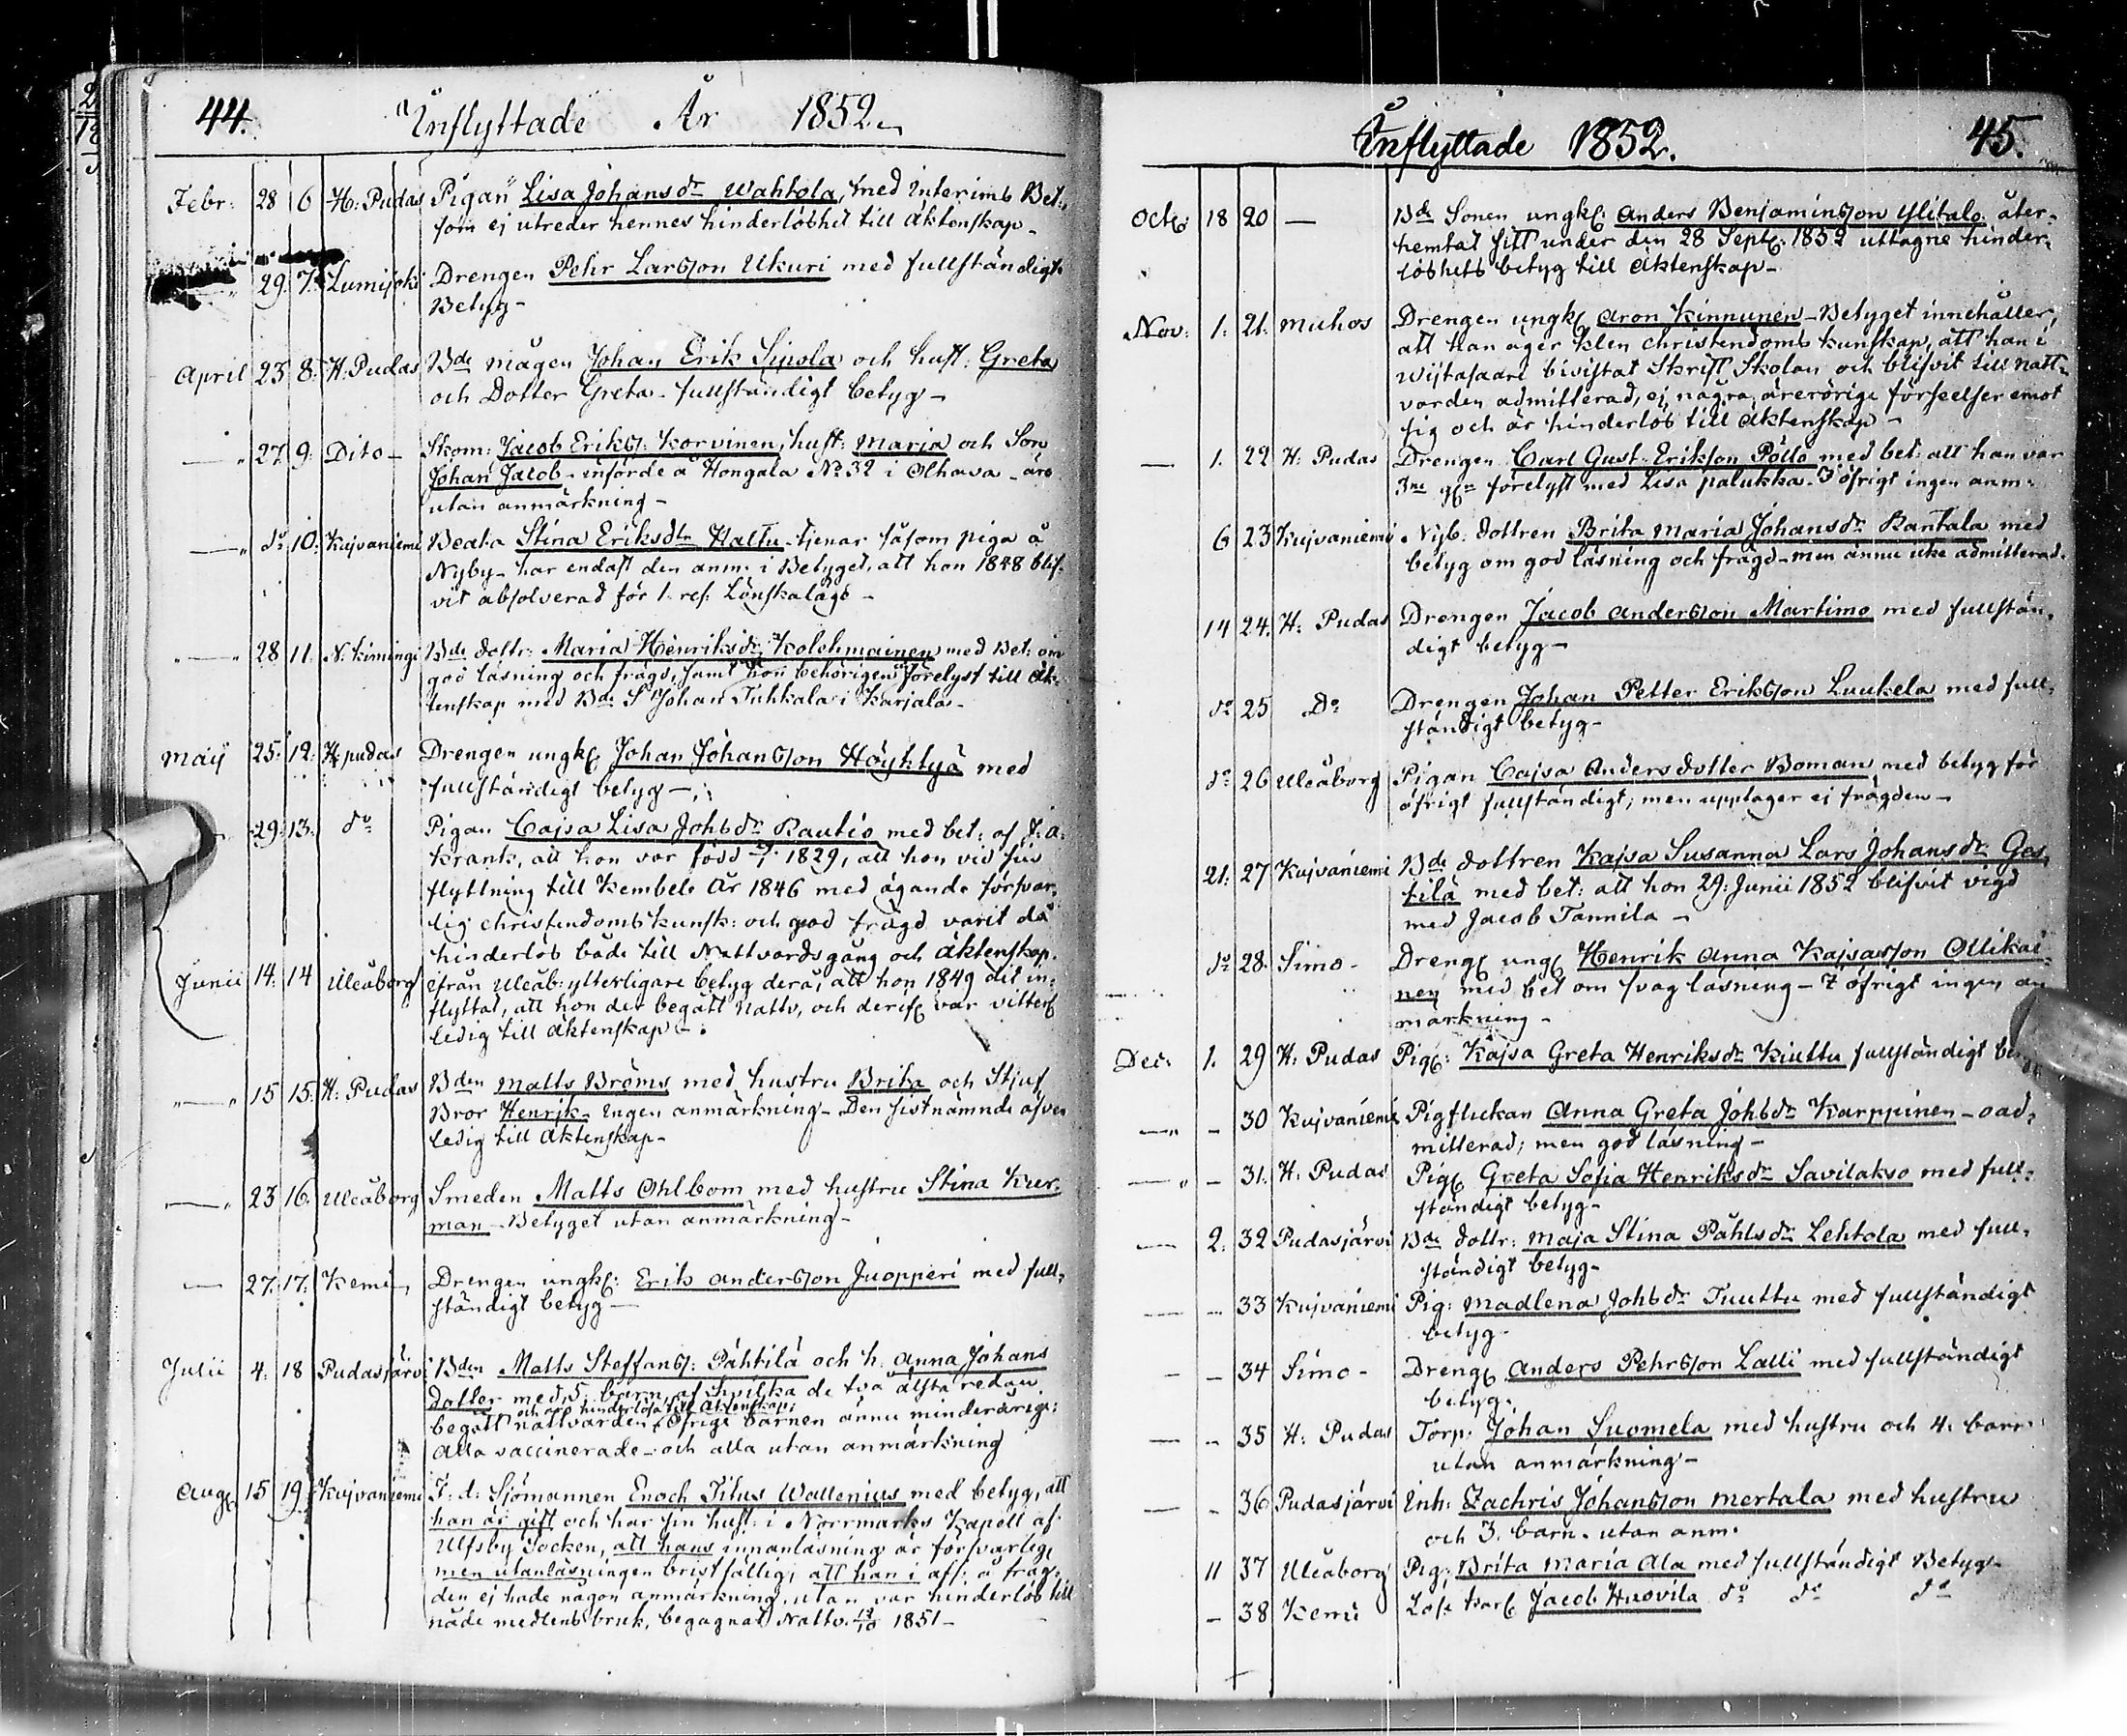 44. Inflyttade År 1852.
Febr: 28 6 H: Pudas Pigan Lisa Johansdr Wahtola, med Interims Bet:,
som ej utreder hennes hinderlöshet till Äktenskap-
29. 7. Lumijoki Drengen Pehr Larsson Ukuri med fullständigt
Betyg-
April 23 8. H: Pudas Bde mågen Johan Erik Sipola och hust: Greta
och Dotter Greta - fullständigt betyg-
" 27. 9. Dito- Skom: Jacob Eriks: Korvinen, hust: Maria och Son
Johan Jacob - införde å Hongala No 32 i Olhava - äro
utan anmärkning-
" do 10. Kujvaniemi Beata Stina Eriksdtr Haltu - tjenar såsom piga å
Nyby - har endast den anm: i Betyget, att hon 1848 blif-
vit absolverad för 1. res: Lönskaläge-
" 28 11. N: Kiminge Bde dottr: Maria Henriksdr Kolehmainen med Bet: om
god läsning och frägd, samt hon behörigen förelyst till Äk-
tenskap med Bde S Johan Tuhkala i Karjala-
Maij 25. 12. H: pudas Drengen ungk: Johan Johansson Höyhtyä med
fullständigt betyg-
29. 13. do Pigan Cajsa Lisa Johsdr Rautio med bet: af J: A:
Krank, att hon var född 1829, att hon vid sin
flyttning till Kembele År 1846 med ägande försvar-
lig christendoms kunsk: och god frägd varit då
hinderlös både till Nattvardsgång och Äktenskap.
Junii 14. 14 Uleåborg ifrån Uleåb: ytterligare betyg derå, att hon 1849 dit in-
flyttat, att hon der begått Nattv, och derif var vitterl
ledig till äktenskap-
" 15 15. H: Pudas Bden Matts Bröms med hustru Brita och Stjuf
Bror Henrik- Ingen anmärkning- Den sistnämnde äfven
ledig till Äktenskap-
" 23 16. Uleåborg Smeden Matts Ohlbom med hustru Stina Kur-
man - Betyget utan anmärkning-
27. 17. Kemi, Drengen ungk: Erik Andersson Juopperi med full-
ständigt betyg-
Julii 4. 18 Pudasjärvi Bden Matts Steffans: Pähtilä och h: Anna Johans
dotter med 5. barn, af hvilka de två älsta redan
och äro hinderlösa till Äktenskap;
begått nattvarden; öfrige barnen ännu minderårige:
Alla vaccinerade - och alla utan anmärkning
Aug 15 19. Kujvaniemi F: d: Sjömannen Enoch Titus Wallenius med betyg, att
han är gift och har sin hust: i Norrmarks Kapell af
Ulfsby Socken, att hans innanläsning är försvarlig,
men utanläsningen bristfällig; att han i afs: å fräg-
den ej hade någon anmärkning, utan var hinderlös till
nåde medlens bruk, begagnat Nattv. 1851-
Inflyttade 1852. 45.
Octb: 18 20 — Bde Sonen ungk: Anders Benjaminsson Ylitalo åter-
hemtat sitt under den 28 Sept: 1852 uttagne hinder-
löshets betyg till äktenskap-
Nov: 1. 21. Muhos Drengen ungk: Aron Kinnunen - Betyget innehåller,
att han äger klen christendoms kunskap, att han i
Wistasaari bivistat Skrift Skolan och blifvit till natt-
varden admitterad, ej några ärerörige förseelser emot
sig och är hinderlös till äktenskap-
— 1. 22 H: Pudas Drengen Carl Gust: Eriksson Pöllö med bet: att han var
3ne gr förelyst med Lisa Palukka. I öfrigt ingen anm:
6 23 Kujvaniemi Nyb: dottren Brita Maria Johansdr Rantala med
betyg om god läsning och frägd - men ännu icke admitterad.
14 24. H: Pudas Drengen Jacob Andersson Martimo med fullstän-
digt betyg-
do 25 Do Drengen Johan Petter Eriksson Luukela med full-
ständigt betyg-
do 26 Uleåborg Pigan Cajsa Andersdotter Boman med betyg för
öfrigt fullständigt; men upptager ej frägden-
21. 27 Kujvaniemi Bde dottren Kajsa Susanna Lars Johansdr Ges-
tilä med bet: att hon 29. Junii 1852 blifvit vigd
med Jacob Tannila-
do 28. Simo- Dreng ung Henrik Anna Kajsasson Ollikai-
nen med bet om svag läsning - I öfrigt ingen an
märkning-
Dec: 1. 29 H: Pudas Pig: Kajsa Greta Henriksdr Kiuttu fullständigt be
" - 30 Kujvaniemi Pigflickan Anna Greta Johsdr Karppinen - oad-
mitterad; men god läsning-
" - 31. H: Pudas Pig Greta Sofia Henriksdr Savilakso med full-
ständigt betyg-
— 2. 32 Pudasjärvi Bde dottr: Maja Stina Påhlsdr Lehtola med full-
ständigt betyg-
— - 33 Kujvaniemi Pig: Madlena Johsdr Tuuttu med fullständigt
betyg-
- - 34 Simo- Dreng Anders Pehrsson Lalli med fullständigt
betyg.
— - 35 H: Pudas Torp: Johan Suomela med hustru och 4. barn
utan anmärkning-
— - 36 Pudasjärvi Inh: Zachris Johansson Mertala med hustru
och 3. barn. utan anm.
11 37 Uleåborg Pig: Brita Maria Ala med fullständigt Betyg-
- 38 Kemi Lös: karl Jacob Huovila do do do